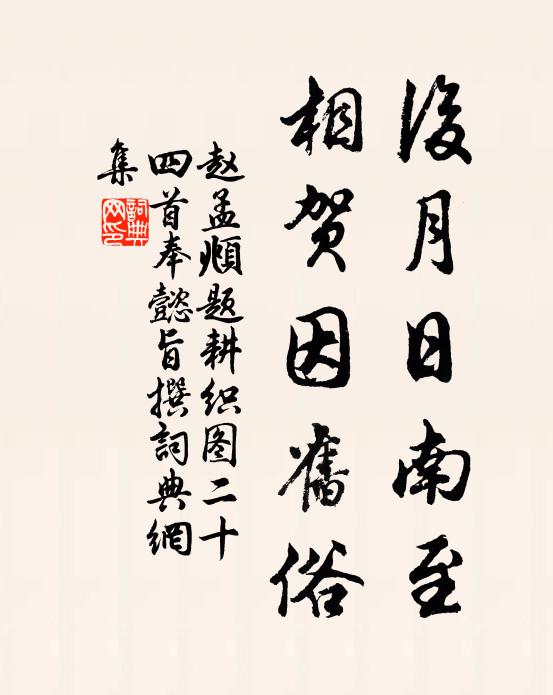 復月日南至
相贺因舊俗
赵孟頫题耕织图二十
四首奉懿旨撰詞典網
集
詞典
网印